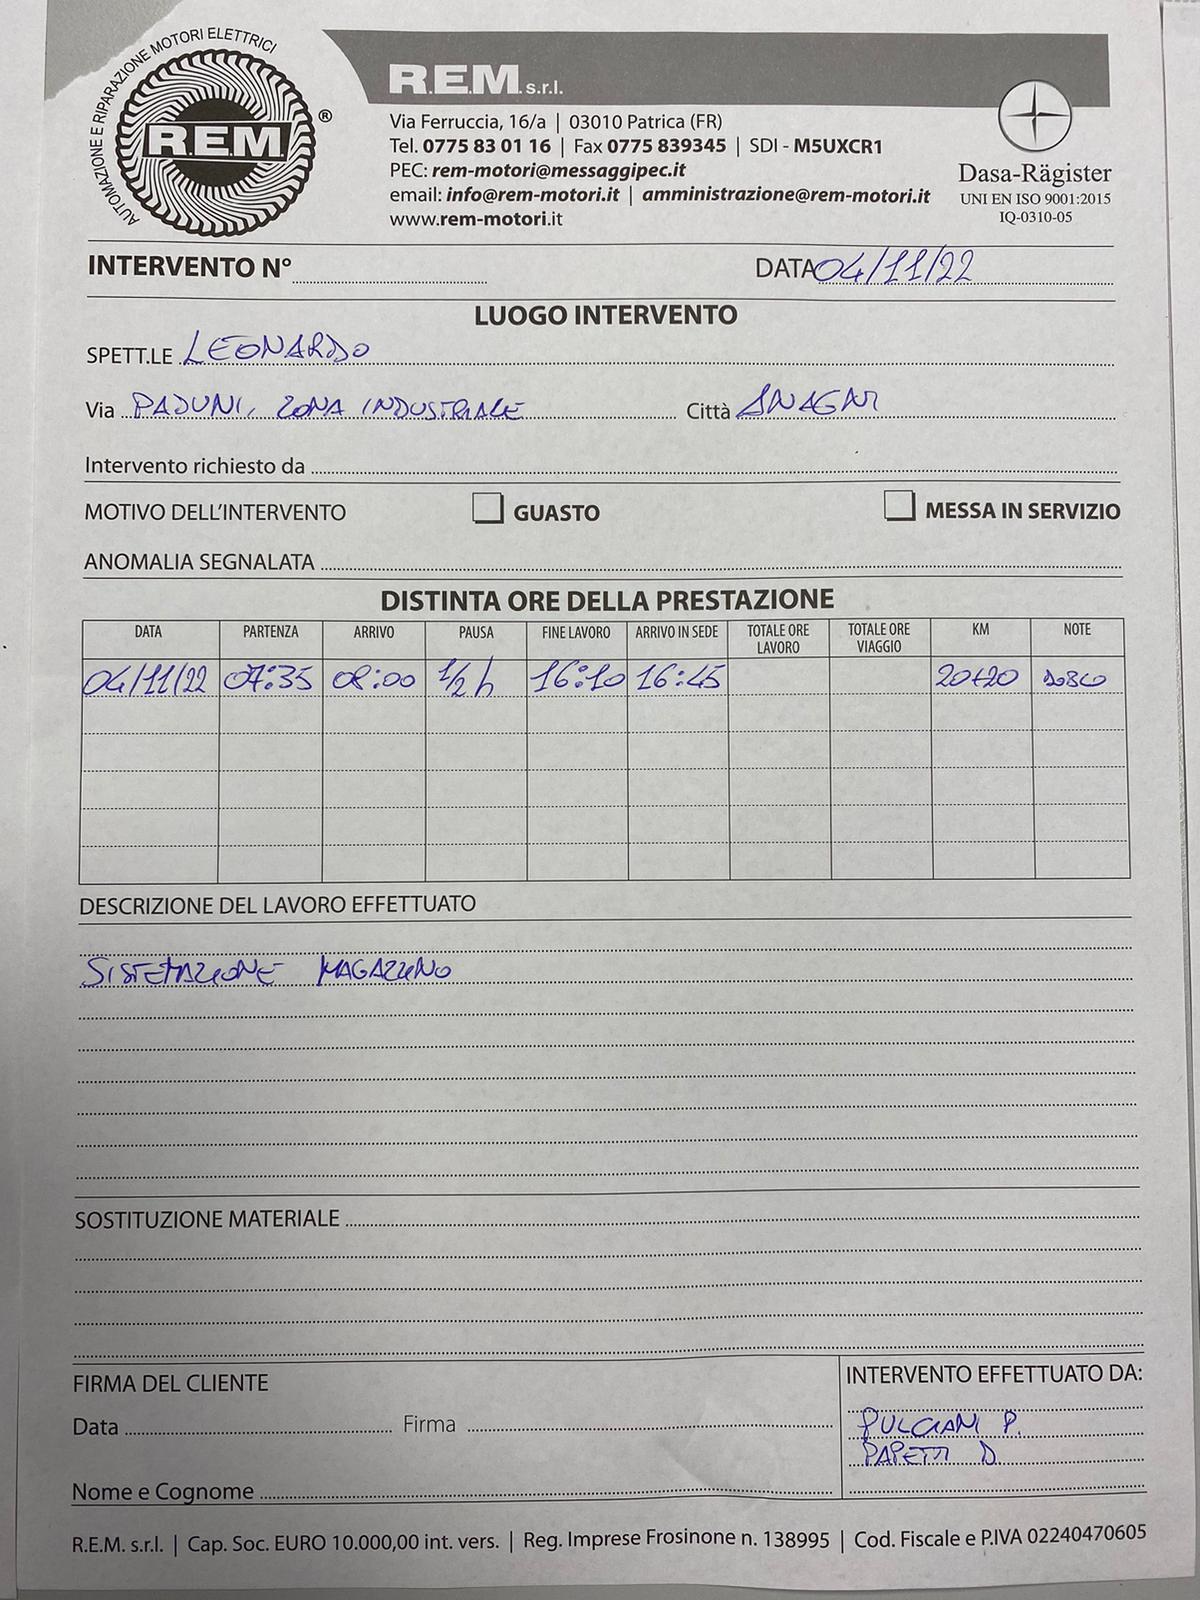 AUTOMAZIONE E RIPARAZIONE MOTORI ELETTRICI
R.E.M. ®
R.E.M. s.r.l.
Via Ferruccia, 16/a | 03010 Patrica (FR)
Tel. 0775 83 01 16 | Fax 0775 839345 | SDI - M5UXCR1
PEC: rem-motori@messaggipec.it
email: info@rem-motori.it | amministrazione@rem-motori.it
www.rem-motori.it
Dasa-Rägister
UNI EN ISO 9001:2015
IQ-0310-05
INTERVENTO N° DATA 04/11/22
LUOGO INTERVENTO
SPETT.LE LEONARDO
Via PADUNI, ZONA INDUSTRIALE Città ANAGNI
Intervento richiesto da
MOTIVO DELL'INTERVENTO GUASTO MESSA IN SERVIZIO
ANOMALIA SEGNALATA
DISTINTA ORE DELLA PRESTAZIONE
DATA PARTENZA ARRIVO PAUSA FINE LAVORO ARRIVO IN SEDE TOTALE ORE LAVORO TOTALE ORE VIAGGIO KM NOTE
04/11/22 07:35 08:00 1/2 h 16:10 16:45 20+20 DOBLO
DESCRIZIONE DEL LAVORO EFFETTUATO
SISTEMAZIONE MAGAZZINO
SOSTITUZIONE MATERIALE
FIRMA DEL CLIENTE
Data Firma
Nome e Cognome
INTERVENTO EFFETTUATO DA:
PULCIANI P.
PAPETTI D.
R.E.M. s.r.l. | Cap. Soc. EURO 10.000,00 int. vers. | Reg. Imprese Frosinone n. 138995 | Cod. Fiscale e P.IVA 02240470605